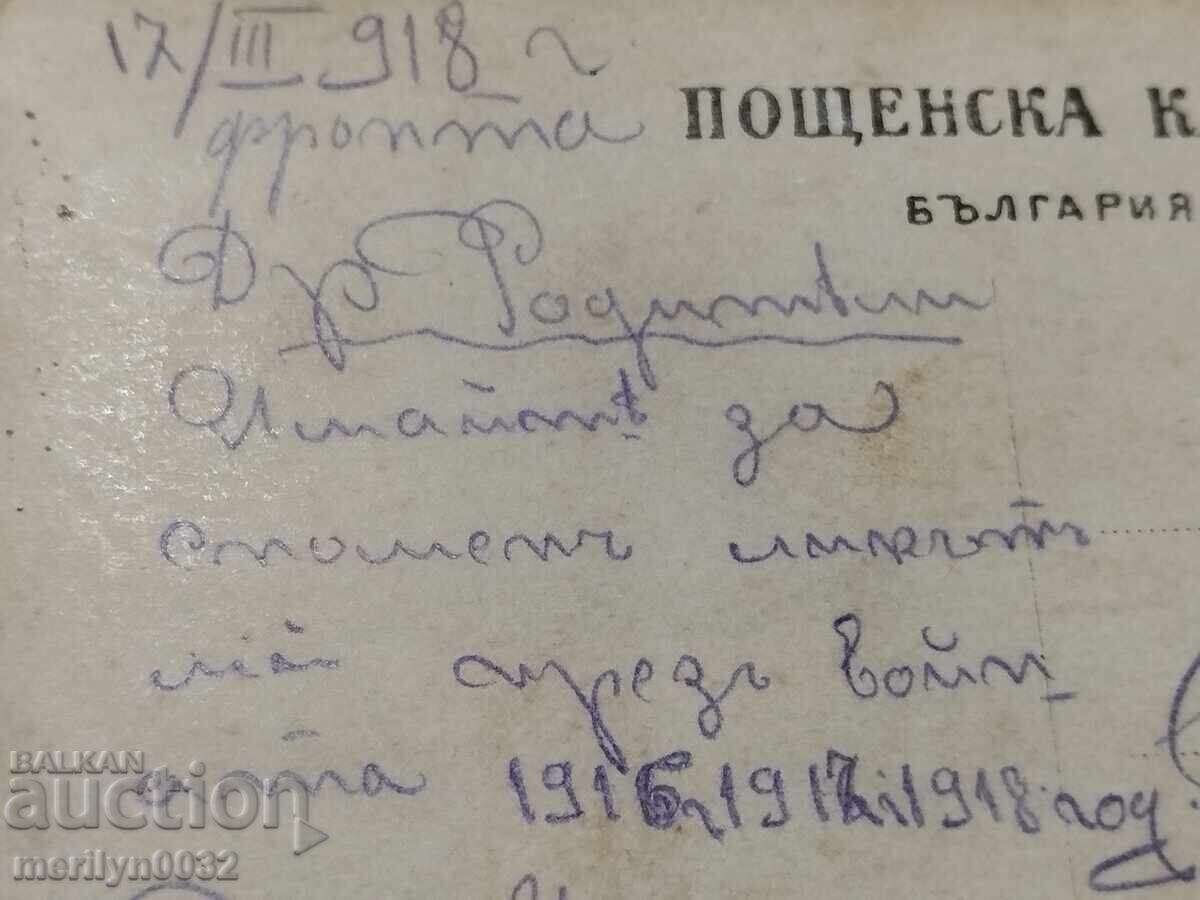 17/III 918 г
фронта
ПОЩЕНСКА К
БЪЛГАРИЯ
Др Родитѣли
Имайтѣ за
споменъ ликътъ
ми презъ войн
ата 1916, 1917, 1918 год.
BALKAN
auction
merilyn0032